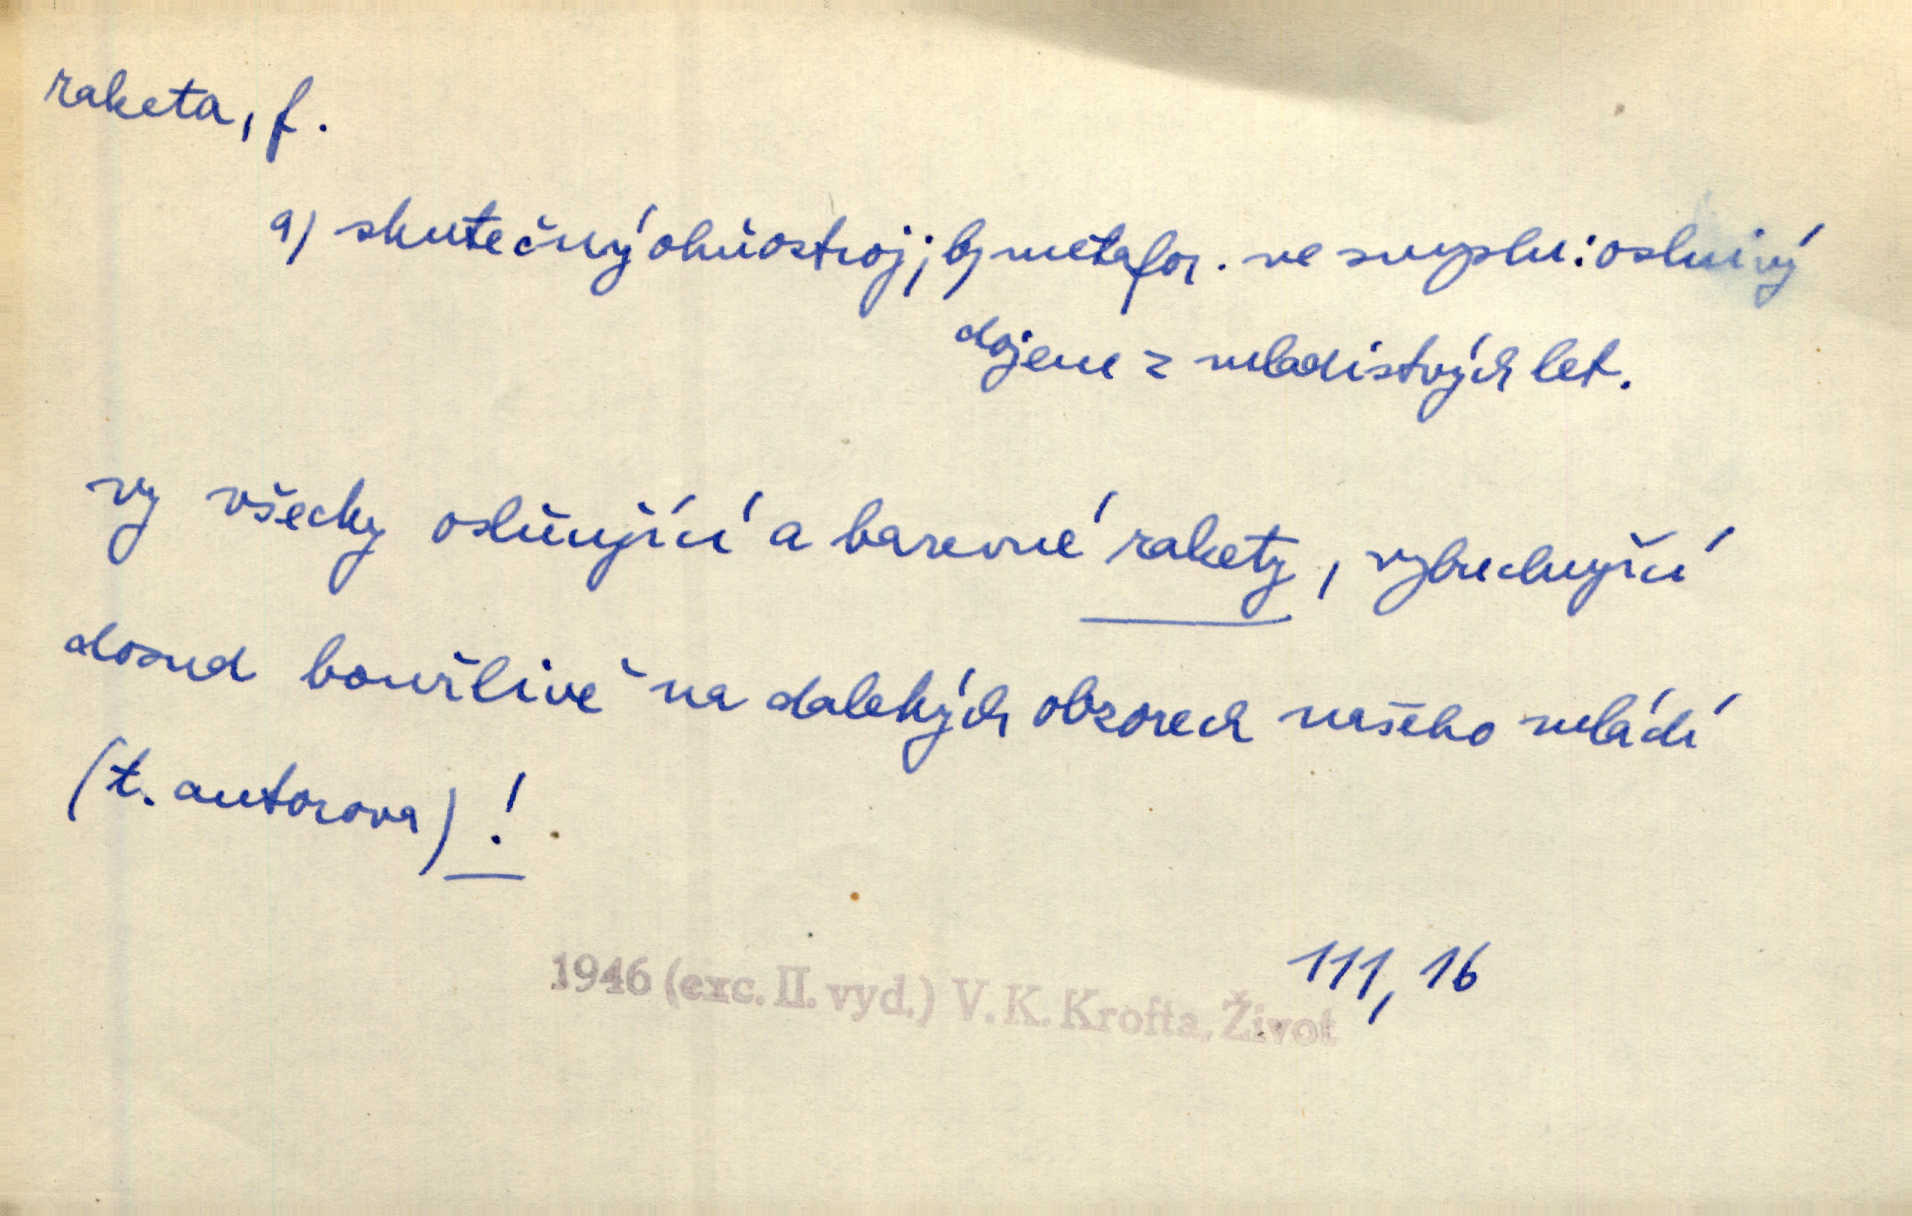 raketa, f.
a) skutečný ohňostroj; b) metafor. ve smyslu: oslnivý
dojem z mladistvých let.
vy všecky oslňující a barevné rakety, vybuchující
dosud bouřlivě na dalekých obzorech našeho mládí
(t. autorova)!
111, 16
1946 (exc. II. vyd.) V. K. Krofta, Život